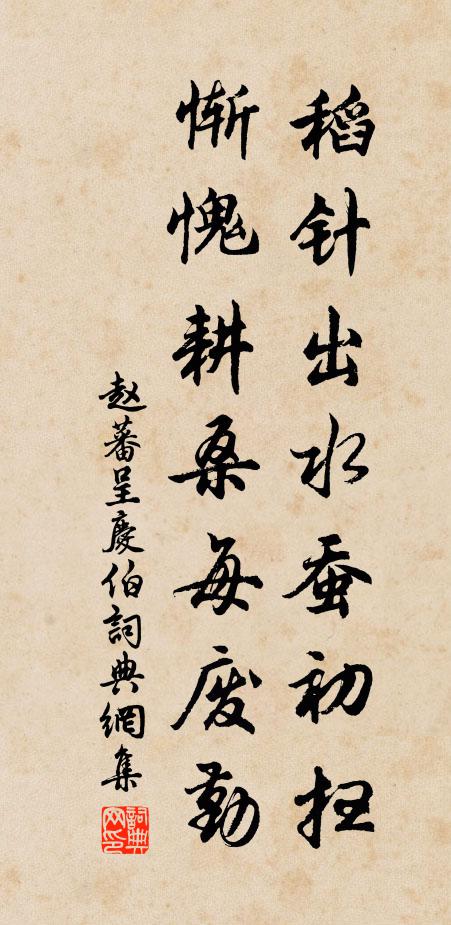 稻针出水蚕初扫
惭愧耕桑每废勤
赵蕃呈慶伯詞典網集
詞典网印